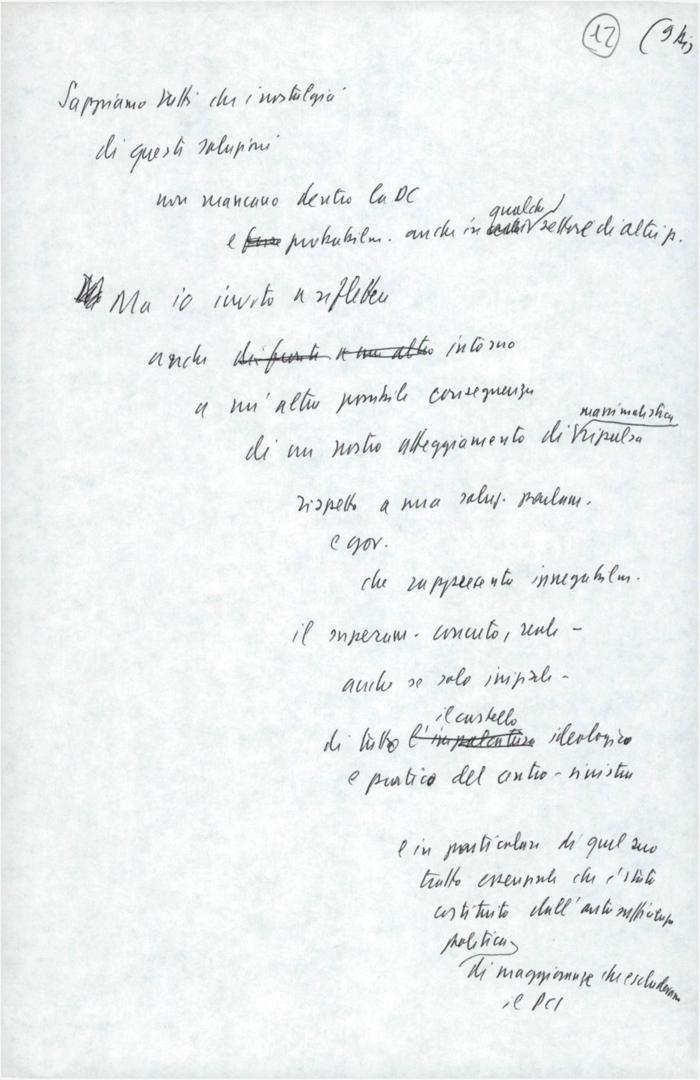 12 (9 bis
Sappiamo tutti che i nostalgici
di questi soluzioni
non mancano dentro la DC
qualche
e forse probabilm. anche in settore di altri p.
Ma io invito a riflettere
anche di fronti a un altro intorno
a un'altra possibile conseguenza
massimalistica
di un nostro atteggiamento di ripulsa
rispetto a una soluz. parlam.
e gov.
che rappresenta innegabilm.
il superam. concreto, reale -
anche se solo iniziale -
il castello
di tutto l'impalcatura ideologico
e pratico del centro-sinistra
e in particolare di quel suo
tratto essenziale che è stato
costituito dall'autosufficienza
politica
di maggioranze che escludevano
il PCI